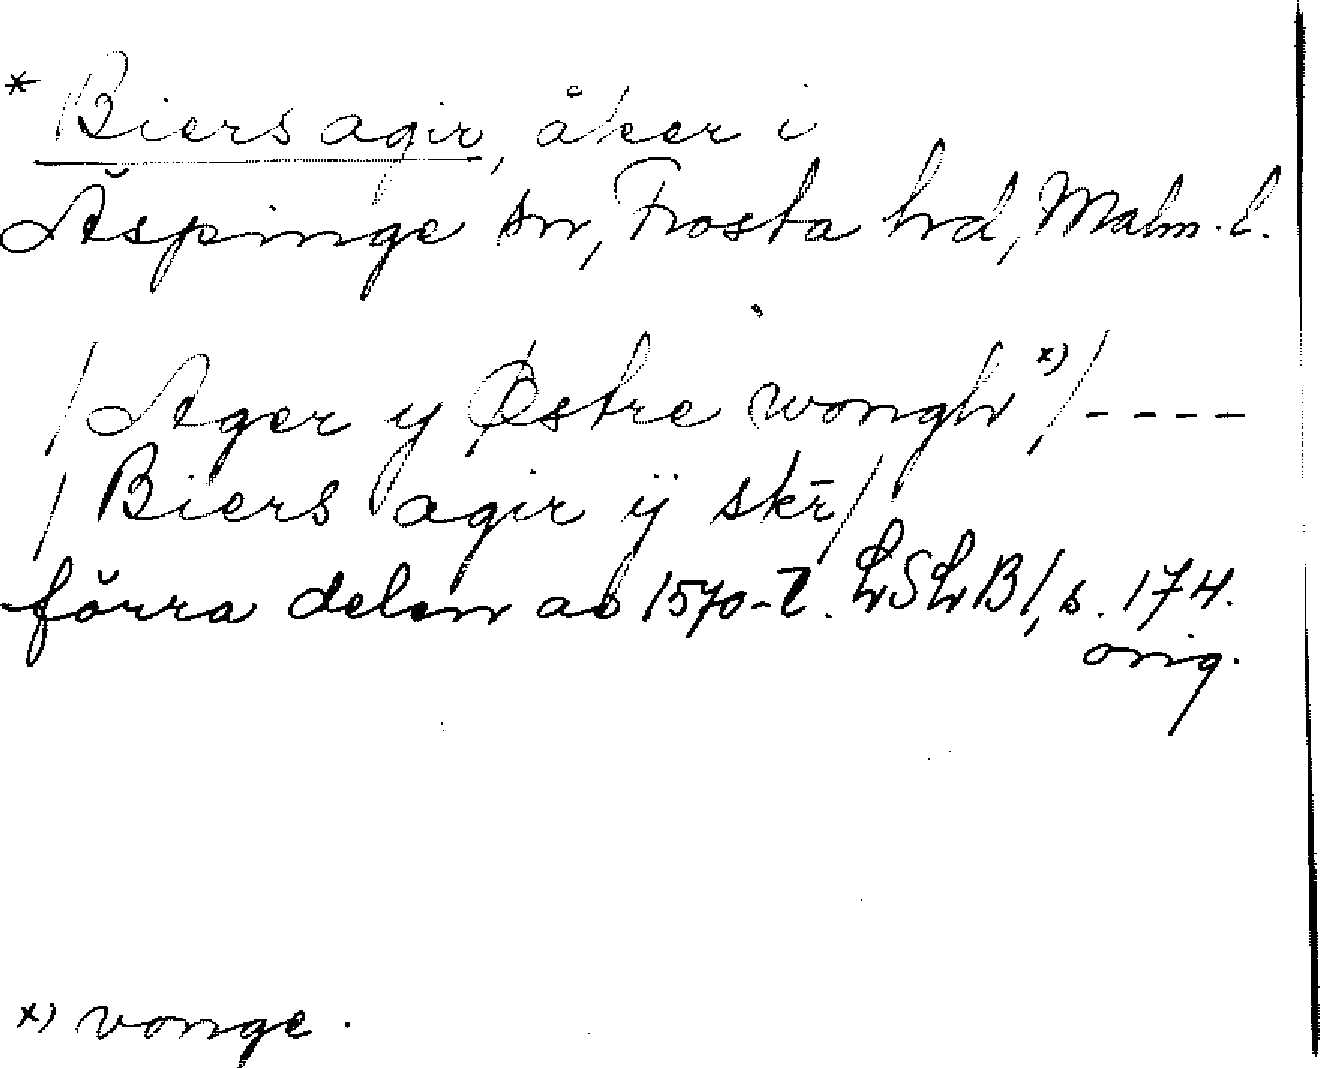 * Biers agir, åker i
Äspinge sn, Frosta hd, Malm. l.
/Ager y Østre wongh x)/ ----
/Biers agir ÿ skr̄/
förra delen av 1570-t. LSLB I, s. 174.
orig.
x) vonge.